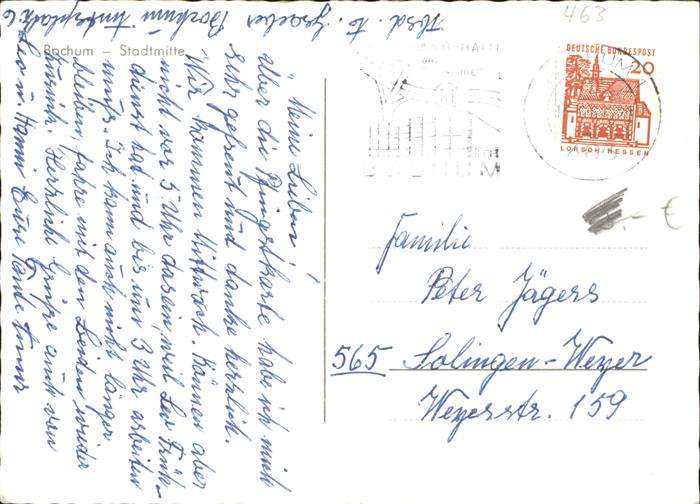 Absd. E. Bochum
463
Bochum – Stadtmitte
Meine Lieben!
Über die Pfingstkarte hab ich mich
sehr gefreut und danke herzlich.
Wir kommen Mittwoch. Können aber
nicht vor 5 Uhr da sein, weil Leo Früh-
dienst hat und bis um 3 Uhr arbeiten
muß. Ich kann auch nicht länger
bleiben, fahre mit den Beiden wieder
zurück. Herzliche Grüße auch von
Leo u. Hanni Eure Tante Änne
DEUTSCHE BUNDESPOST
20
LORSCH/HESSEN
BOCHUM
– €
Familie
Peter Jägers
565 Solingen-Weyer
Weyerstr. 159